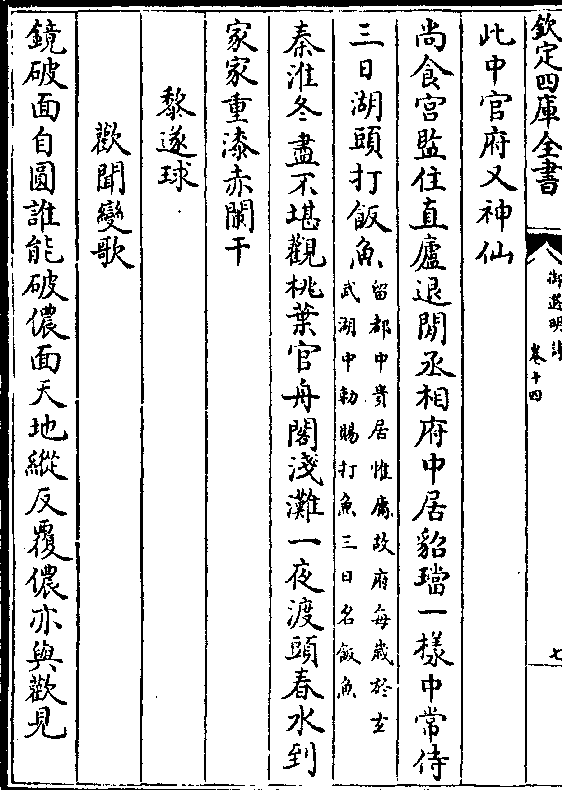 欽定四庫全書
御選明詩
卷十四
七
此中官府又神仙
尚食宫監住直廬退閒丞相府中居貂璫一樣中常侍
三日湖頭打飯魚
留都中貴居惟庸故府每歲於玄
武湖中勅賜打魚三日名飯魚
秦淮冬盡不堪觀桃葉官舟閣淺灘一夜渡頭春水到
家家重漆赤闌干
黎遂球
歡聞變歌
鏡破面自圓誰能破儂面天地縱反覆儂亦與歡見